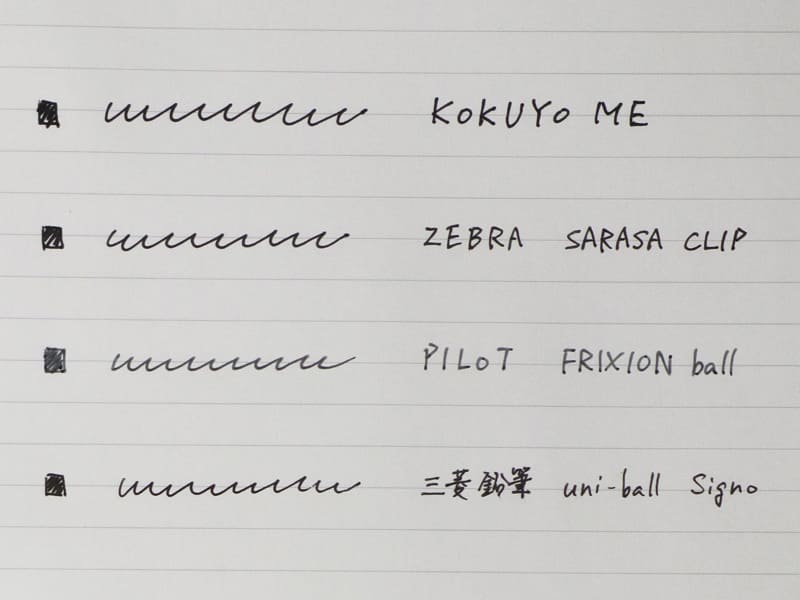 KOKUYO ME
ZEBRA SARASA CLIP
PILOT FRIXION ball
三菱鉛筆 uni-ball Signo